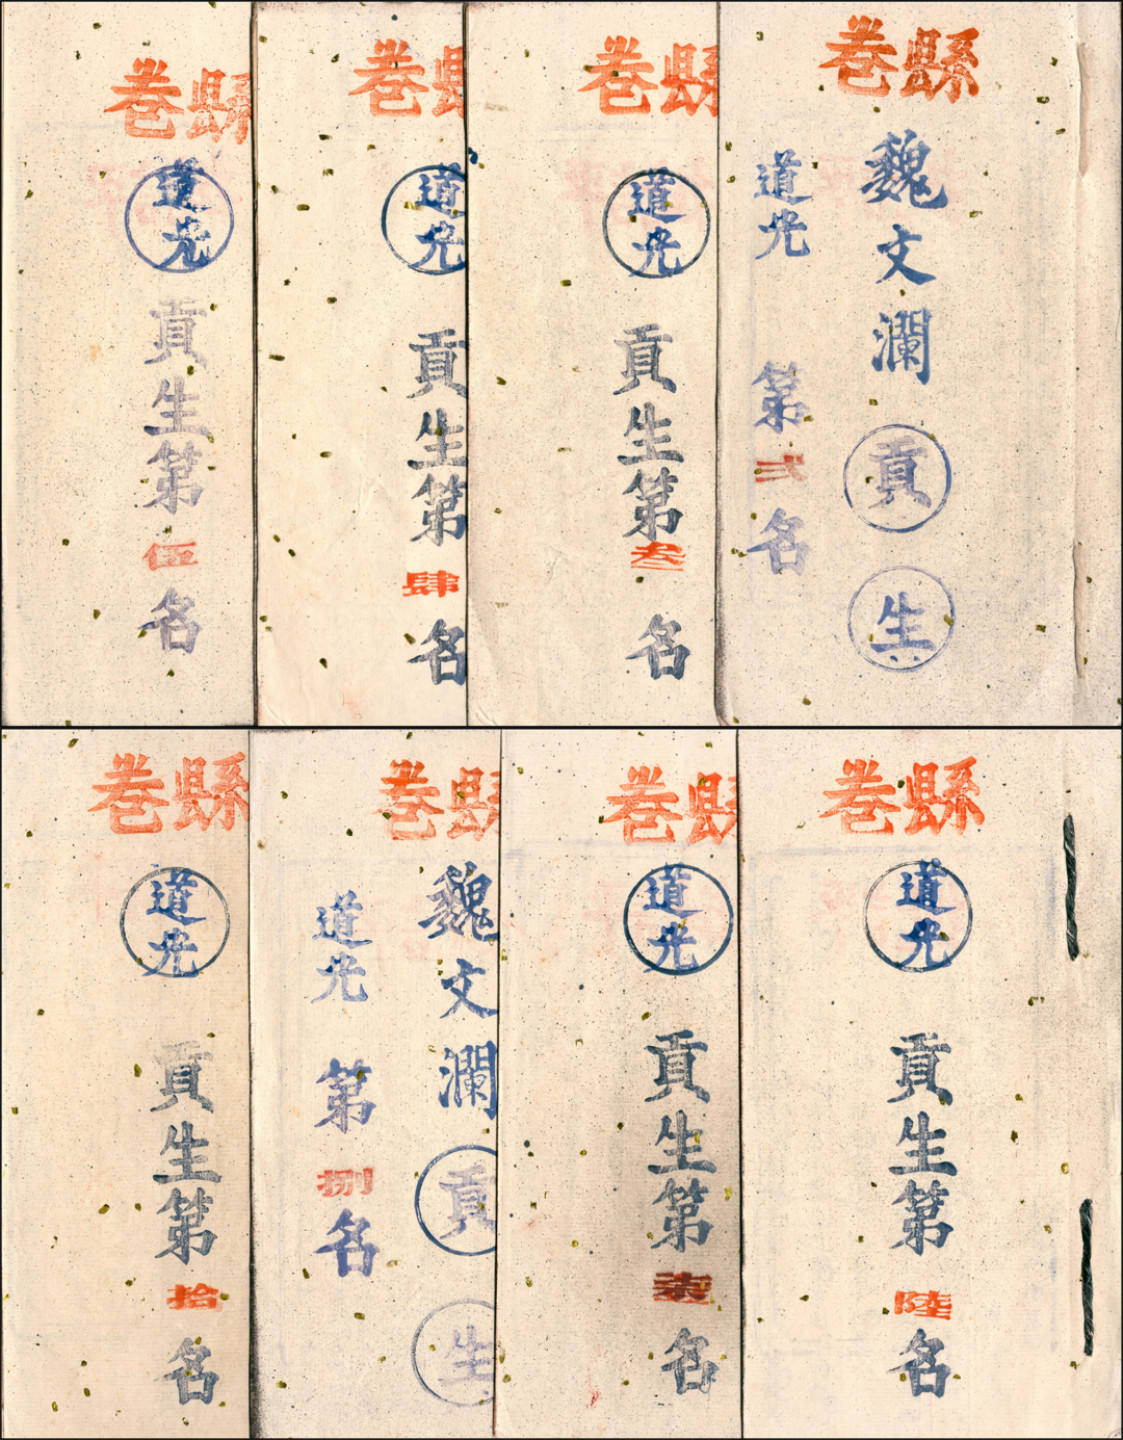 縣卷
魏文瀾貢生
道光第弍名
縣卷
道光貢生第叁名
縣卷
道光貢生第肆名
縣卷
道光貢生第伍名
縣卷
道光貢生第陸名
縣卷
道光貢生第柒名
縣卷
魏文瀾貢生
道光第捌名
縣卷
道光貢生第拾名